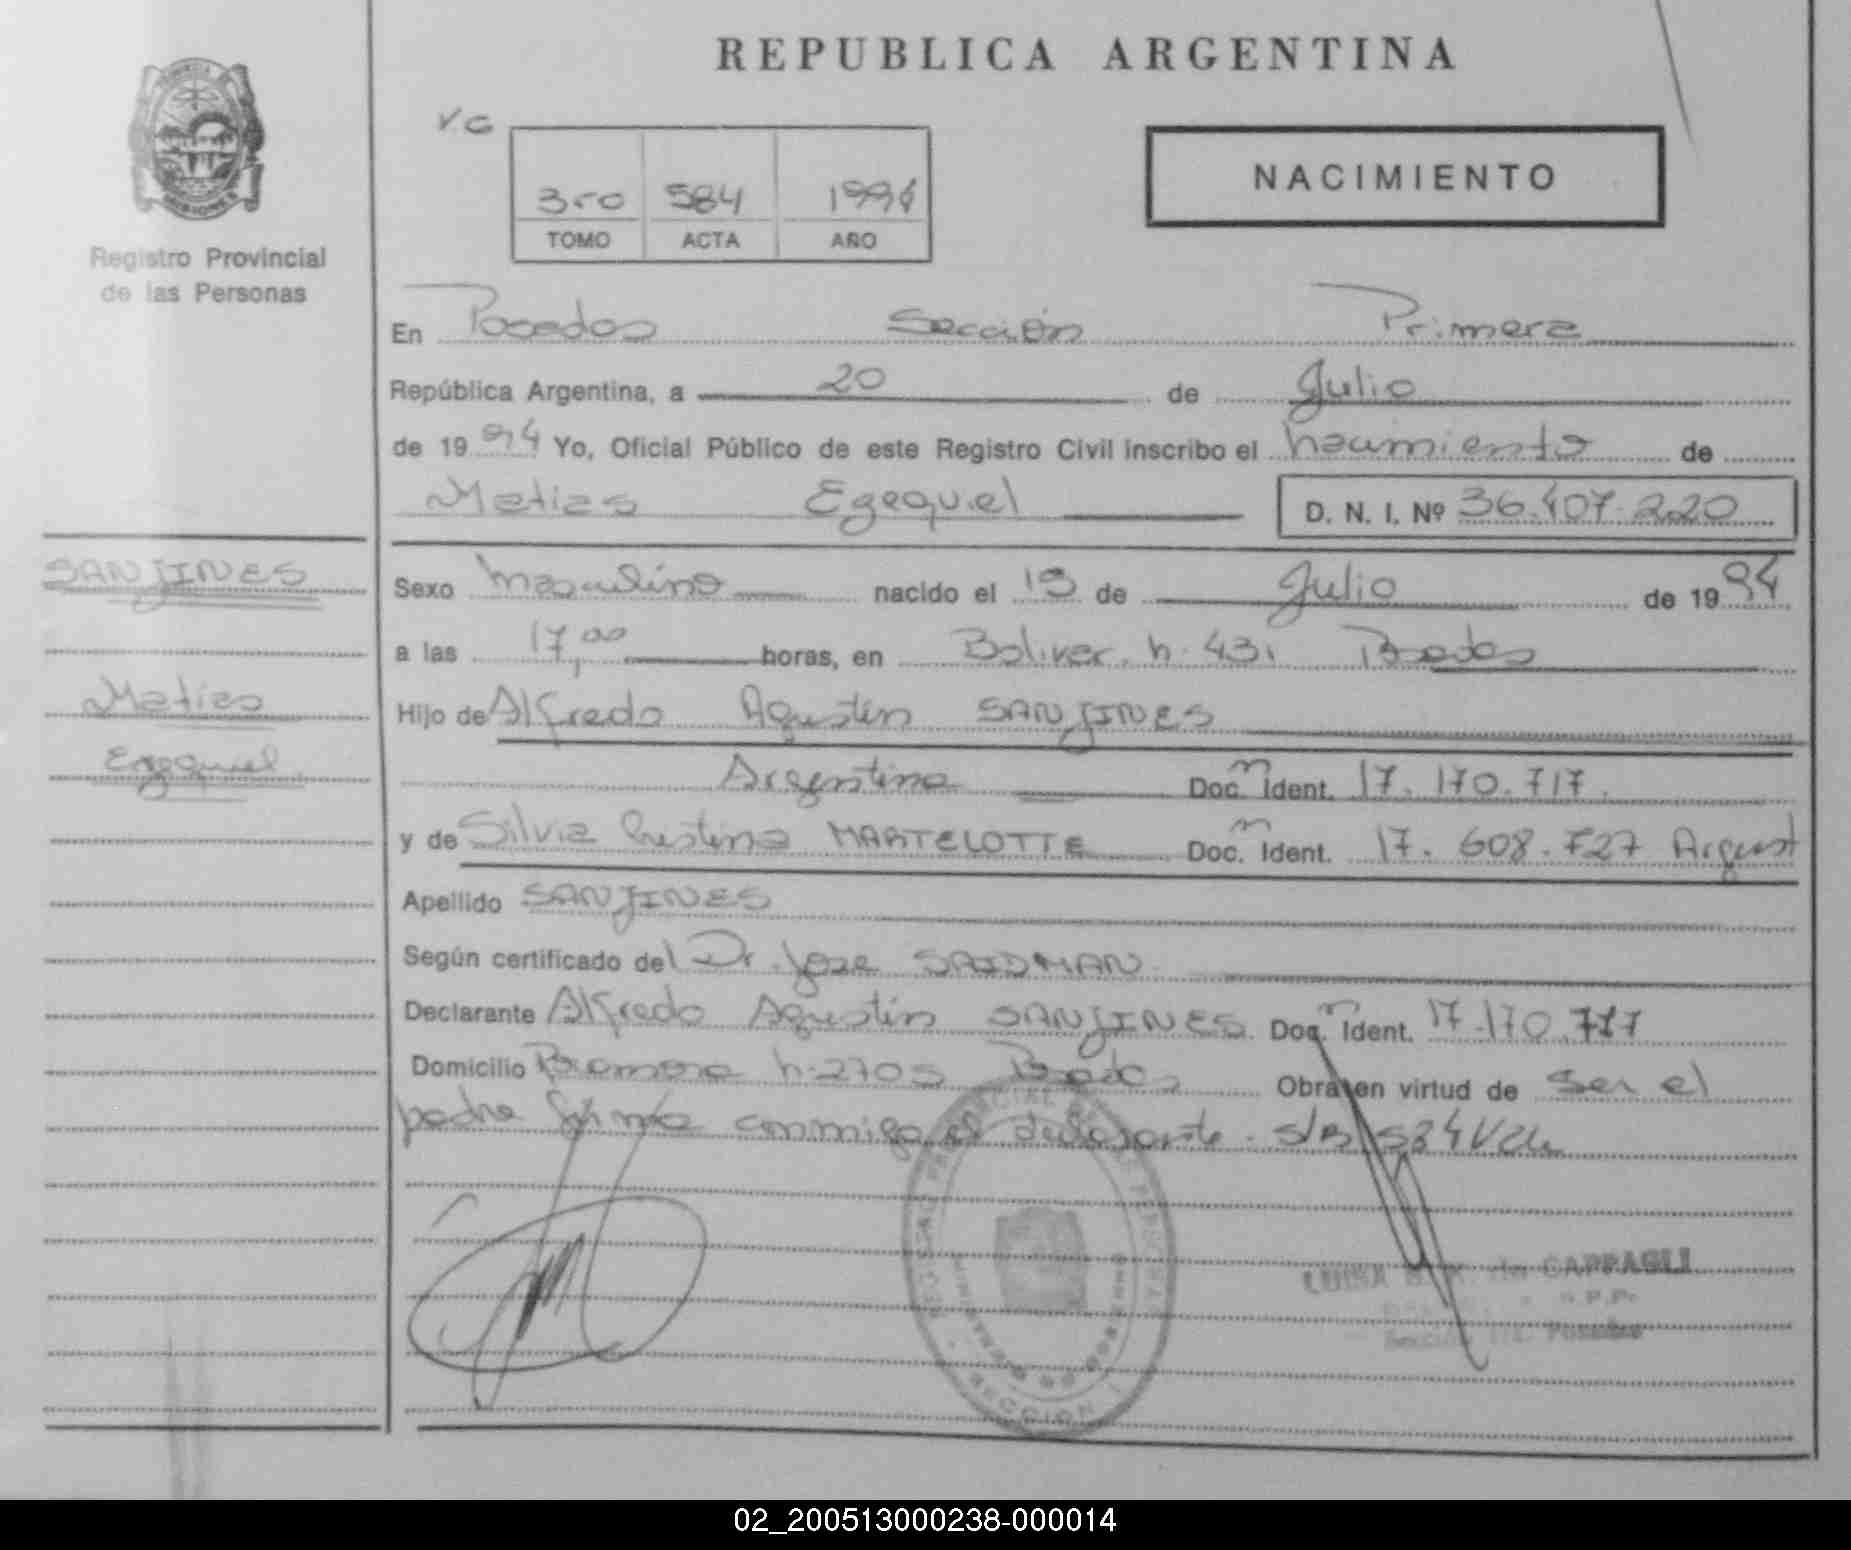 REPUBLICA ARGENTINA
V.G
3ro 584 1994
TOMO ACTA AÑO
NACIMIENTO
MISIONES
Registro Provincial
de las Personas
En Posadas Sección Primera
República Argentina, a 20 de Julio
de 1994 Yo, Oficial Público de este Registro Civil inscribo el nacimiento de
Matias Ezequiel D. N. I. Nº 36.407.220
SANJINES
Matias
Ezequiel
Sexo masculino nacido el 19 de Julio de 1994
a las 17,00 horas, en Bolivar n. 431 Posadas
Hijo de Alfredo Agustin SANJINES
Argentino Doc. Ident. 17.170.717.
y de Silvia Cristina MARTELOTTE Doc. Ident. 17.608.727 Argent
Apellido SANJINES
Según certificado del Dr. Jose SAIDMAN
Declarante Alfredo Agustin SANJINES Doc. Ident. 17.170.717
Domicilio n. 2705 Posadas Obra en virtud de ser el
padre firma conmigo el declarante. S/R 584 Vale
SECCION
LUISA de CAPPAGLI
R.P.P.
Sección 1ra. Posadas
02_200513000238-000014